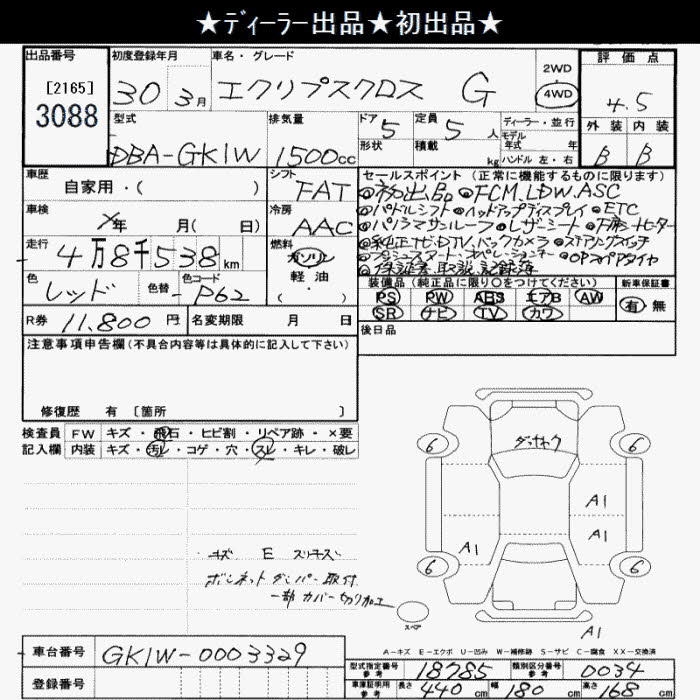 ★ディーラー出品★初出品★
出品番号 初度登録年月 車名・グレード 評価点
[2165] 3088
30 3月 エクリプスクロス G 2WD 4WD 4.5
型式 排気量 ドア 定員 ディーラー・並行 外装 内装
DBA-GK1W 1500cc 5 5人 モデル年式 年 B B
形状 積載 kg ハンドル 左・右
車歴 シフト セールスポイント(正常に機能するものに限ります)
自家用・( ) FAT ◎初出品 ◎FCM.LDW.ASC
車検 冷房 ◎パドルシフト ◎ヘッドアップディスプレイ ◎ETC
年 月( 日) AAC ◎パノラマサンルーフ ◎レザーシート
走行 燃料 ◎純正ナビ.DTV.バックカメラ ◎ステアリングスイッチ
4万8千538km ガソリン
色 色替 色コード 軽油 ◎保証書.取説.記録簿 ◎OPスペアタイヤ
レッド - P62 ・( )
装備品(純正品に限り○をつけてください) 新車保証書
PS PW ABS エアB AW 有・無
R券 11.800円 名変期限 月 日 SR ナビ TV カワ
注意事項申告欄(不具合内容等は具体的に記入して下さい) 後日品
修復歴 有 [箇所 ]
検査員 FW キズ・飛石・ヒビ割・リペア跡・×要
記入欄 内装 キズ・汚レ・コゲ・穴・スレ・キレ・破レ
6 6
A1
A1
A1
6 6
キズ E スリキズ
ボンネットダンパー取付
一部カバー切り加工
スペア
A1
A-キズ E-エクボ U-凹み W-補修跡 S-サビ C-腐食 XX-交換済
車台番号 GK1W-0003329
型式指定番号 参考 18785 類別区分番号 参考 0034
登録番号 車庫証明用 参考 長さ 440cm 幅 180cm 高さ 168cm